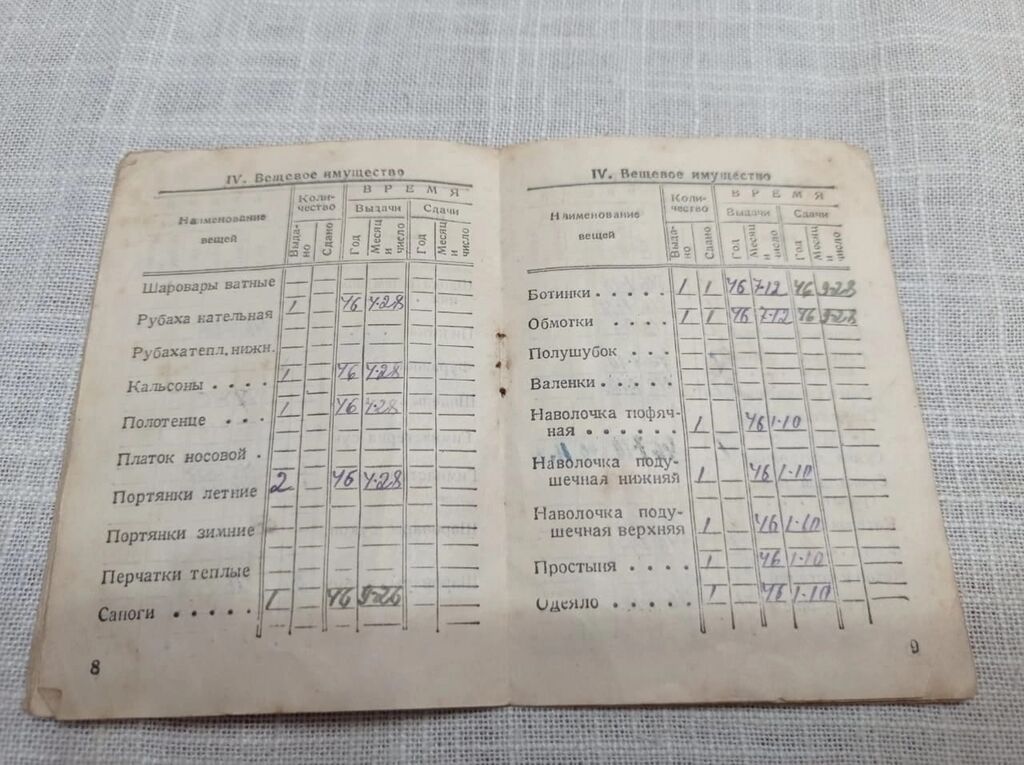 IV. Вещевое имущество
Наименование вещей
Количество
ВРЕМЯ
Выдачи
Сдачи
Выдано
Сдано
Год
Месяц и число
Год
Месяц и число
Шаровары ватные
Рубаха нательная 1 46 4-28
Рубаха тепл. нижн.
Кальсоны . . . . 1 46 4-28
Полотенце . . . 1 46 4-28
Платок носовой .
Портянки летние 2 46 4-28
Портянки зимние
Перчатки теплые
Сапоги . . . . . 1 46 9-26
8
IV. Вещевое имущество
Наименование вещей
Количество
ВРЕМЯ
Выдачи
Сдачи
Выдано
Сдано
Год
Месяц и число
Год
Месяц и число
Ботинки . . . . . 1 1 46 7-12 46 9-28
Обмотки . . . . 1 1 46 7-12 46 9-28
Полушубок . . .
Валенки . . . . .
Наволочка тюфяч-
ная . . . . . . 1 46 1-10
Наволочка поду-
шечная нижняя 1 46 1-10
Наволочка поду-
шечная верхняя 1 46 1-10
Простыня . . . 1 46 1-10
Одеяло . . . . 1 46 1-10
9